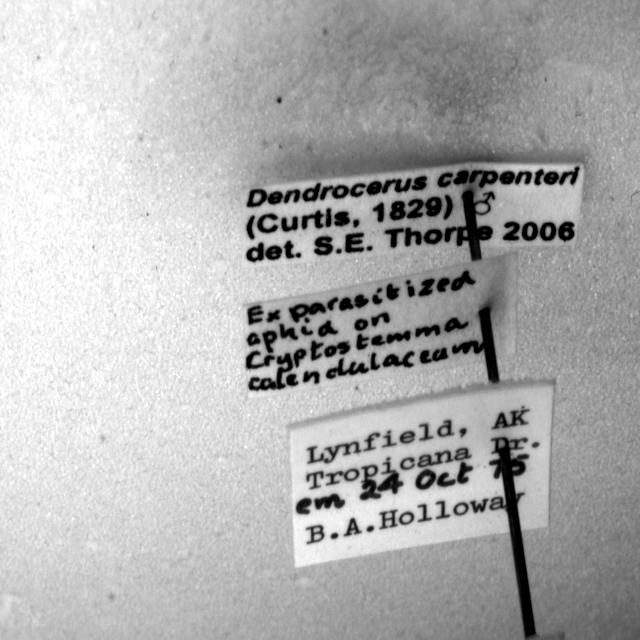 Dendrocerus carpenteri
(Curtis, 1829) ♂
det. S.E. Thorpe 2006
Ex parasitized
aphid on
Cryptostemma
calendulaceum
Lynfield, AK
Tropicana Dr.
em 24 Oct 75
B.A.Holloway